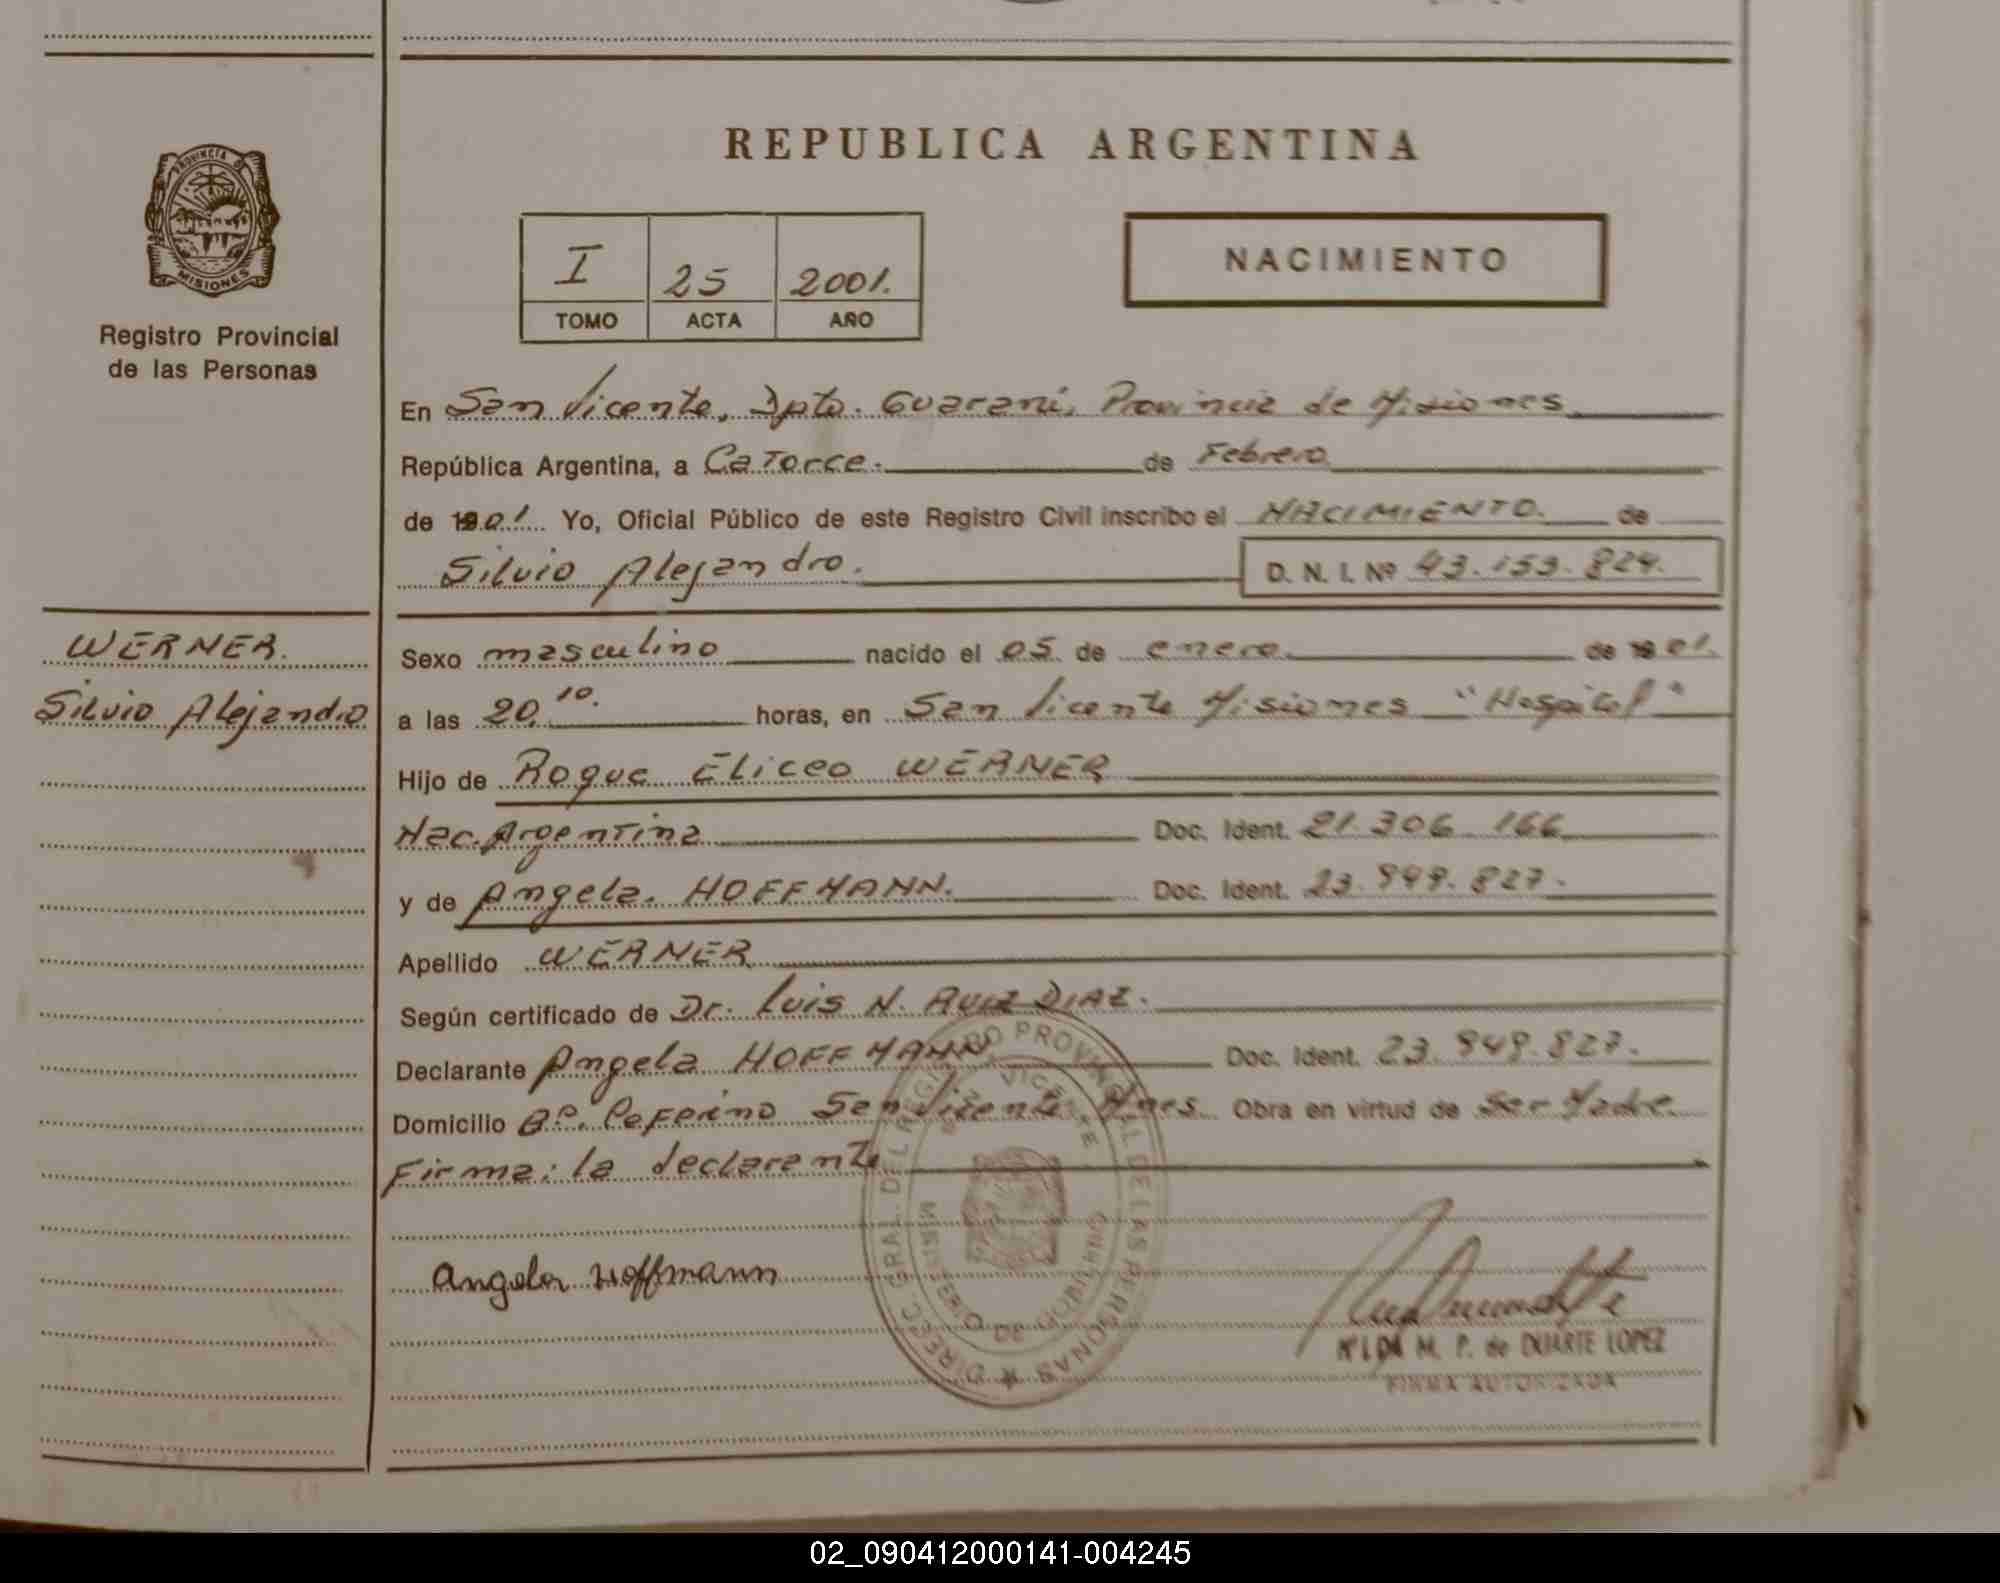 REPUBLICA ARGENTINA
PROVINCIA DE
MISIONES
Registro Provincial
de las Personas
I 25 2001.
TOMO ACTA AÑO
NACIMIENTO
En San Vicente, Dpto. Guaraní, Provincia de Misiones
República Argentina, a Catorce. de Febrero
de 1901 Yo, Oficial Público de este Registro Civil inscribo el NACIMIENTO. de
Silvio Alejandro. D. N. I. Nº 43.153.824.
WERNER.
Silvio Alejandro
Sexo masculino nacido el 05 de enero de 1901.
a las 20,10. horas, en San Vicente Misiones "Hospital"
Hijo de Roque Eliceo WERNER
Nac. Argentina Doc. Ident. 21.306.166
y de Angela. HOFFMANN. Doc. Ident. 23.949.827.
Apellido WERNER
Según certificado de Dr. Luis N. RUIZ DIAZ.
Declarante Angela HOFFMANN Doc. Ident. 23.949.827.
Domicilio Bº. Ceferino San Vicente Mnes. Obra en virtud de Ser Madre
Firma: la declarante
Angela Hoffmann
DIREC. GRAL. DEL REGISTRO PROVINCIAL DE LAS PERSONAS
VICENTE
MINISTERIO DE
M. P. de DUARTE LOPEZ
FIRMA AUTORIZADA
02_090412000141-004245